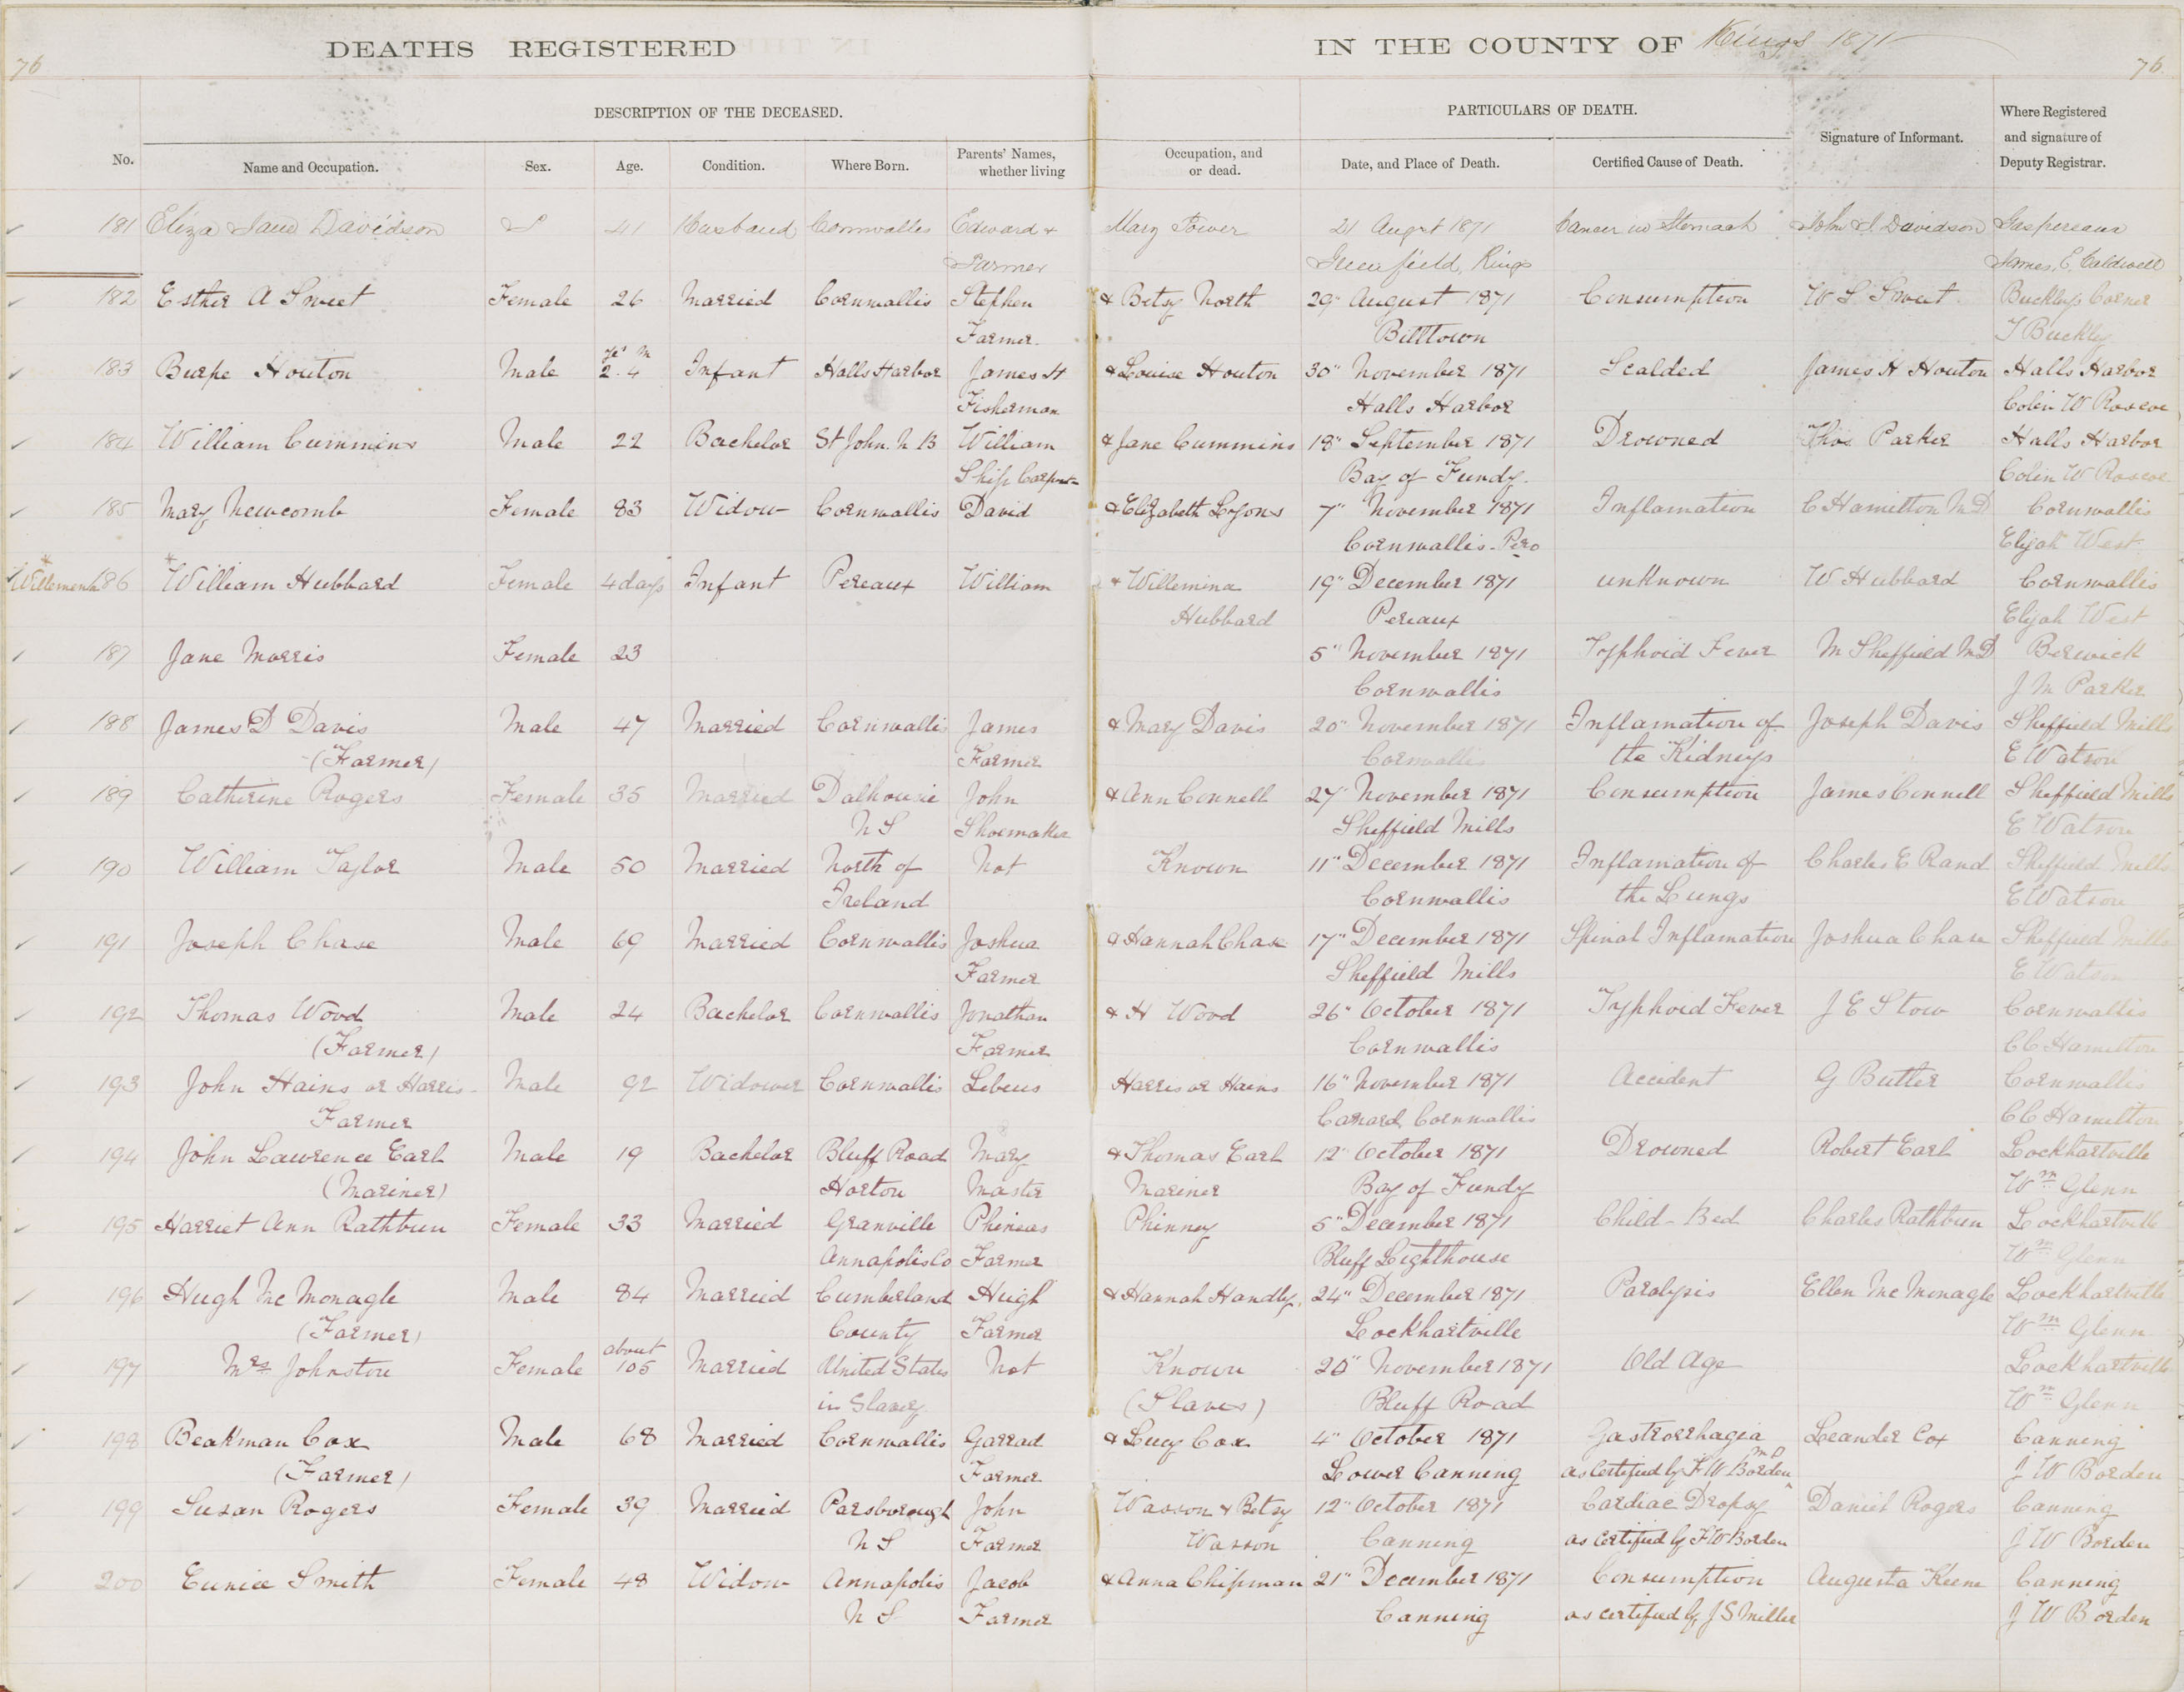 76
DEATHS REGISTERED
IN THE COUNTY OF Kings 1871
76
DESCRIPTION OF THE DECEASED.
PARTICULARS OF DEATH.
No.
Name and Occupation.
Sex.
Age.
Condition.
Where Born.
Parents' Names, whether living
Occupation, and or dead.
Date, and Place of Death.
Certified Cause of Death.
Signature of Informant.
Where Registered and signature of Deputy Registrar.
181 Eliza Jane Davidson 41 Husband Cornwallis Edward & Mary Power 21 August 1871 Cancer in Stomach John S Davidson Gaspereaux
Farmer Greenfield, Kings James E Caldwell
182 Esther A Sweet Female 26 Married Cornwallis Stephen & Betsy North 29" August 1871 Consumption W S Sweet Buckleys Corner
Farmer Billtown T Buckley
183 Burpe Houton Male ys 2. M 4 Infant Halls Harbor James H & Louise Houton 30" November 1871 Scalded James H Houton Halls Harbor
Fisherman Halls Harbor Colin W Roscoe
184 William Cummins Male 22 Bachelor St John. N B William & Jane Cummins 18" September 1871 Drowned Thos Parker Halls Harbor
Ship Carpntr Bay of Fundy. Colin W Roscoe
185 Mary Newcomb Female 83 Widow Cornwallis David & Elizabeth Lyons 7" November 1871 Inflamation C Hamilton M D Cornwallis
Cornwallis - Pero Elijah West
* Willemenh 186 * William Hubbard Female 4 days Infant Pereaux William & Willemina 19" December 1871 unknown W Hubbard Cornwallis
Hubbard Pereaux Elijah West
187 Jane Morris Female 23 5" November 1871 Typhoid Fever M Sheffield M D Berwick
Cornwallis J M Parker
188 James D Davis Male 47 Married Cornwallis James & Mary Davis 20" November 1871 Inflamation of Joseph Davis Sheffield Mills
(Farmer) Farmer Cornwallis the Kidneys E Watson
189 Catherine Rogers Female 35 Married Dalhousie John & Ann Connell 27" November 1871 Consumption James Connell Sheffield Mills
N S Shoemaker Sheffield Mills E Watson
190 William Taylor Male 50 Married North of Not Known 11" December 1871 Inflamation of Charles E Rand Sheffield Mills
Ireland Cornwallis the Lungs E Watson
191 Joseph Chase Male 69 Married Cornwallis Joshua & Hannah Chase 17" December 1871 Spinal Inflamation Joshua Chase Sheffield Mills
Farmer Sheffield Mills E Watson
192 Thomas Wood Male 24 Bachelor Cornwallis Jonathan & H Wood 26" October 1871 Typhoid Fever J E Stow Cornwallis
(Farmer) Farmer Cornwallis C C Hamilton
193 John Hains or Harris Male 92 Widower Cornwallis Lebeus Harris or Hains 16" November 1871 Accident G Butler Cornwallis
Farmer Canard, Cornwallis C C Hamilton
194 John Lawrence Earl Male 19 Bachelor Bluff Road Mary & Thomas Earl 12" October 1871 Drowned Robert Earl Lockhartville
(Mariner) Horton Master Mariner Bay of Fundy Wm Glenn
195 Harriet Ann Rathbun Female 33 Married Granville Phineas Phinney 5" December 1871 Child-Bed Charles Rathbun Lockhartville
Annapolis Co Farmer Bluff Lighthouse Wm Glenn
196 Hugh Mc Monagle Male 84 Married Cumberland Hugh & Hannah Handly, 24" December 1871 Paralysis Ellen Mc Monagle Lockhartville
(Farmer) County Farmer Lockhartville Wm Glenn
197 Mrs Johnston Female about 105 Married United States Not Known 20" November 1871 Old Age Lockhartville
in Slavery (Slaves) Bluff Road Wm Glenn
198 Beakman Cox Male 68 Married Cornwallis Garrad & Lucy Cox 4" October 1871 Gastrorrhagia Leander Cox Canning
(Farmer) Farmer Lower Canning as certified by F W Borden M D J W Borden
199 Susan Rogers Female 39 Married Parsborough John Wasson & Betsy 12" October 1871 Cardiac Dropsy Daniel Rogers Canning
N S Farmer Wasson Canning as certified by F W Borden J W Borden
200 Eunice Smith Female 48 Widow Annapolis Jacob & Anna Chipman 21" December 1871 Consumption Augusta Keene Canning
N S Farmer Canning as certified by J S Miller J W Borden